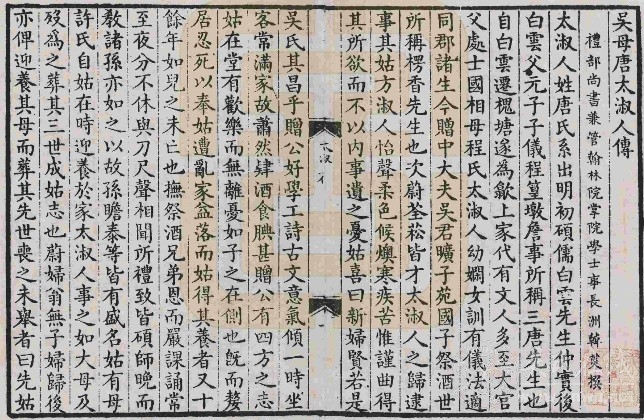 吳母唐太淑人傳
禮部尚書兼管翰林院掌院學士事長洲韓菼撰
太淑人姓唐氏系出明初碩儒白雲先生仲實後
白雲父元子子儀程篁墩詹事所稱三唐先生也
自白雲遷槐塘遂為歙上家代有文人多至大官
父處士國相母程氏太淑人幼嫻女訓有儀法適
同郡諸生今贈中大夫吳君曠子苑國子祭酒世
所稱楞香先生也次蔚荃菘皆才太淑人之歸逮
事其姑方淑人怡聲柔色候燠寒疾苦惟謹曲得
其所欲而不以內事遺之憂姑喜曰新婦賢若是
太淑 傳
吳氏其昌乎贈公好學工詩古文意氣傾一時坐
客常滿家故蕭然肆酒食腆甚贈公有四方之志
姑在堂有歡樂而無離憂如子之在側也既而嫠
居忍死以奉姑遭亂家益落而姑得其養者又十
餘年如兒之未亡也撫祭酒兄弟恩而嚴課誦常
至夜分不休與刀尺聲相聞所禮致皆碩師晚而
教諸孫亦如之以故孫瞻泰等皆有盛名姑有母
許氏自姑在時迎養於家太淑人事之如大母及
歿為之葬其三世成姑志也蔚婦翁無子婦歸後
亦俾迎養其母而葬其先世喪之未舉者曰先姑